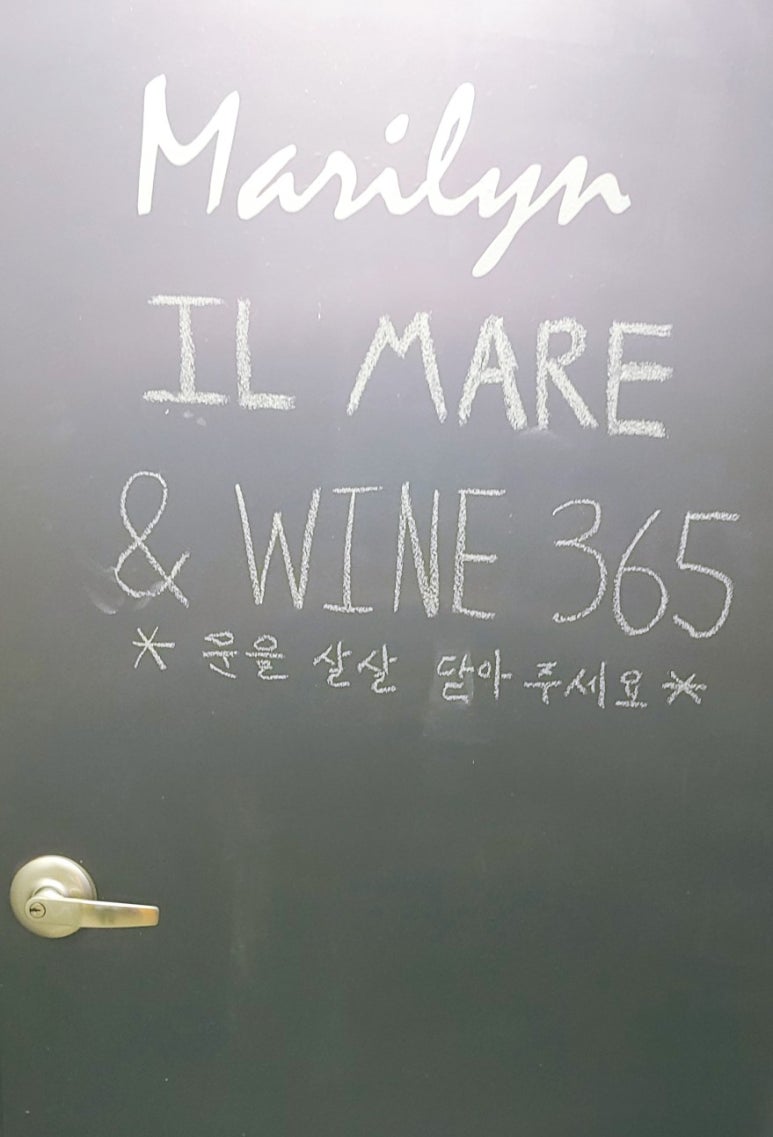 Marilyn
IL MARE
& WINE 365
* 문을 살살 닫아 주세요 *